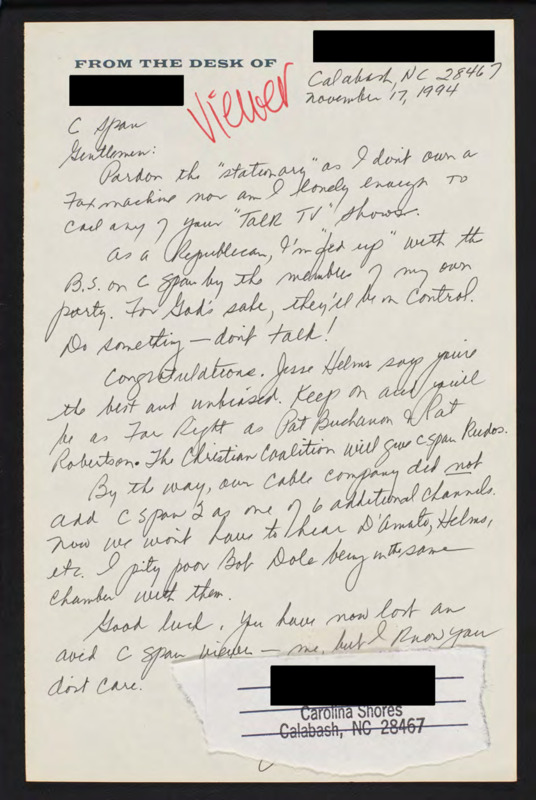 FROM THE DESK OF
Viewer
Calabash, NC 28467
November 17, 1994
C Span
Gentlemen:
Pardon the "stationary" as I don't own a
Fax machine nor am I lonely enough to
call any of your "Talk TV" shows.
As a Republican, I'm "fed up" with the
B.S. on C Span by the members of my own
party. For God's sake, they'll be in control.
Do something — don't talk!
Congratulations. Jesse Helms says you're
the best and unbiased. Keep on and you'll
be as Far Right as Pat Buchanan & Pat
Robertson. The Christian Coalition will give C Span Kudos.
By the way, our cable company did not
add C Span 2 as one of 6 additional channels.
Now we won't have to hear D'Amato, Helms,
etc. I pity poor Bob Dole being in the same
chamber with them.
Good luck. You have now lost an
avid C Span viewer — me, but I know you
don't care.
Carolina Shores
Calabash, NC 28467